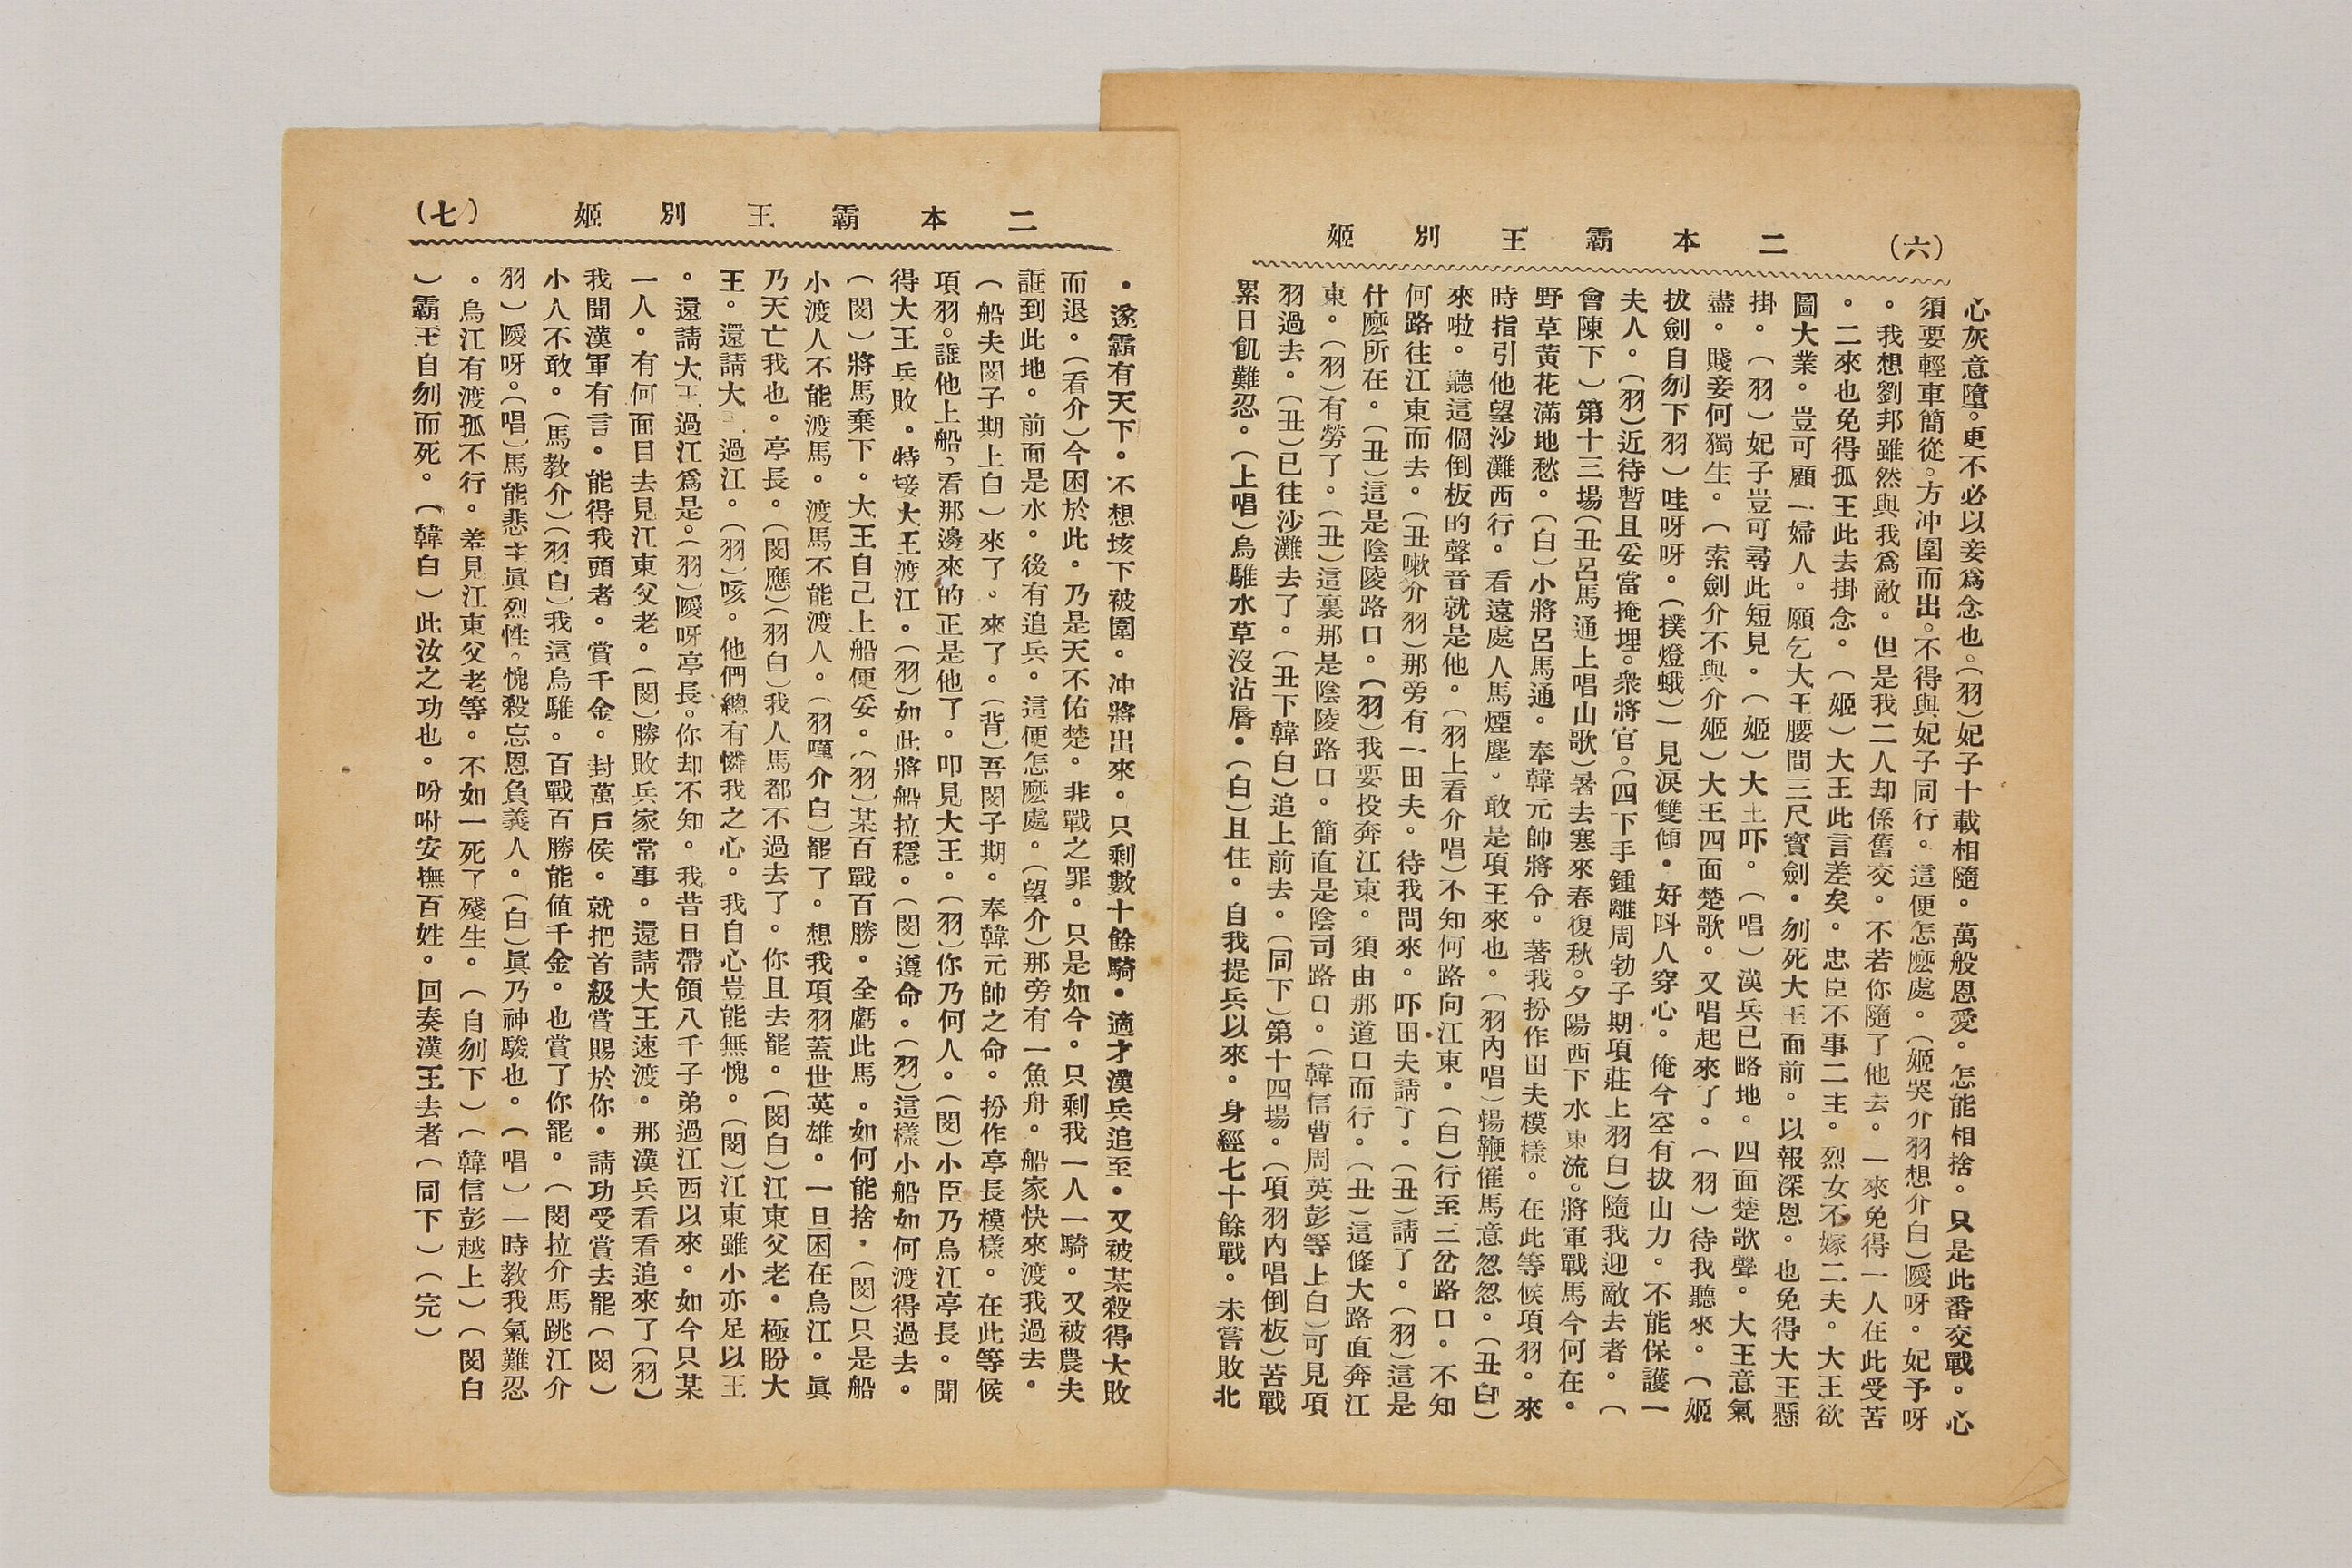 (六) 二本霸王別姬
心灰意墮。更不必以妾爲念也。(羽)妃子十載相隨。萬般恩愛。怎能相捨。只是此番交戰。心
須要輕車簡從。方冲圍而出。不得與妃子同行。這便怎麽處。(姬哭介羽想介白)噯呀。妃予呀
。我想劉邦雖然與我爲敵。但是我二人却係舊交。不若你隨了他去。一來免得一人在此受苦
。二來也免得孤王此去掛念。(姬)大王此言差矣。忠臣不事二主。烈女不嫁二夫。大王欲
圖大業。豈可顧一婦人。願乞大王腰間三尺寳劍。刎死大王面前。以報深恩。也免得大王懸
掛。(羽)妃子豈可尋此短見。(姬)大王吓。(唱)漢兵已略地。四面楚歌聲。大王意氣
盡。賤妾何獨生。(索劍介不與介姬)大王四面楚歌。又唱起來了。(羽)待我聽來。(姬
拔劍自刎下羽)哇呀呀。(撲燈蛾)一見淚雙傾。好叫人穿心。俺今空有拔山力。不能保護一
夫人。(羽)近待暫且妥當掩埋。衆將官。(四下手鍾離周勃子期項莊上羽白)隨我迎敵去者。(
會陳下)第十三場(丑呂馬通上唱山歌)暑去寒來春復秋。夕陽西下水東流。將軍戰馬今何在。
野草黃花滿地愁。(白)小將呂馬通。奉韓元帥將令。著我扮作田夫模樣。在此等候項羽。來
時指引他望沙灘西行。看遠處人馬煙塵。敢是項王來也。(羽內唱)揚鞭催馬意忽忽。(丑白)
來啦。聽這個倒板的聲音就是他。(羽上看介唱)不知何路向江東。(白)行至三岔路口。不知
何路往江東而去。(丑嗽介羽)那旁有一田夫。待我問來。吓田夫請了。(丑)請了。(羽)這是
什麽所在。(丑)這是陰陵路口。(羽)我要投奔江東。須由那道口而行。(丑)這條大路直奔江
東。(羽)有勞了。(丑)這裏那是陰陵路口。簡直是陰司路口。(韓信曹周英彭等上白)可見項
羽過去。(丑)已往沙灘去了。(丑下韓白)追上前去。(同下)第十四場。(項羽內唱倒板)苦戰
累日飢難忍。(上唱)烏騅水草沒沾脣。(白)且住。自我提兵以來。身經七十餘戰。未嘗敗北
二本霸王別姬 (七)
。遂霸有天下。不想垓下被圍。冲將出來。只剩數十餘騎。適才漢兵追至。又被某殺得大敗
而退。(看介)今困於此。乃是天不佑楚。非戰之罪。只是如今。只剩我一人一騎。又被農夫
誆到此地。前面是水。後有追兵。這便怎麽處。(望介)那旁有一魚舟。船家快來渡我過去。
(船夫閔子期上白)來了。來了。(背)吾閔子期。奉韓元帥之命。扮作亭長模樣。在此等候
項羽。誆他上船。看那邊來的正是他了。叩見大王。(羽)你乃何人。(閔)小臣乃烏江亭長。聞
得大王兵敗。特接大王渡江。(羽)如此將船拉穩。(閔)遵命。(羽)這樣小船如何渡得過去。
(閔)將馬棄下。大王自己上船便妥。(羽)某百戰百勝。全虧此馬。如何能捨。(閔)只是船
小渡人不能渡馬。渡馬不能渡人。(羽嘆介白)罷了。想我項羽蓋世英雄。一旦困在烏江。眞
乃天亡我也。亭長。(閔應)(羽白)我人馬都不過去了。你且去罷。(閔白)江東父老。極盼大
王。還請大王過江。(羽)咳。他們總有憐我之心。我自心豈能無愧。(閔)江東雖小亦足以王
。還請大王過江爲是。(羽)噯呀亭長。你却不知。我昔日帶領八千子弟過江西以來。如今只某
一人。有何面目去見江東父老。(閔)勝敗兵家常事。還請大王速渡。那漢兵看看追來了(羽)
我聞漢軍有言。能得我頭者。賞千金。封萬戶侯。就把首級賞賜於你。請功受賞去罷(閔)
小人不敢。(馬教介)(羽白)我這烏騅。百戰百勝能值千金。也賞了你罷。(閔拉介馬跳江介
羽)噯呀。(唱)馬能悲主眞烈性。愧殺忘恩負義人。(白)眞乃神駿也。(唱)一時教我氣難忍
。烏江有渡孤不行。羞見江東父老等。不如一死了殘生。(自刎下)(韓信彭越上)(閔白
)霸王自刎而死。(韓白)此汝之功也。吩咐安撫百姓。回奏漢王去者(同下)(完)